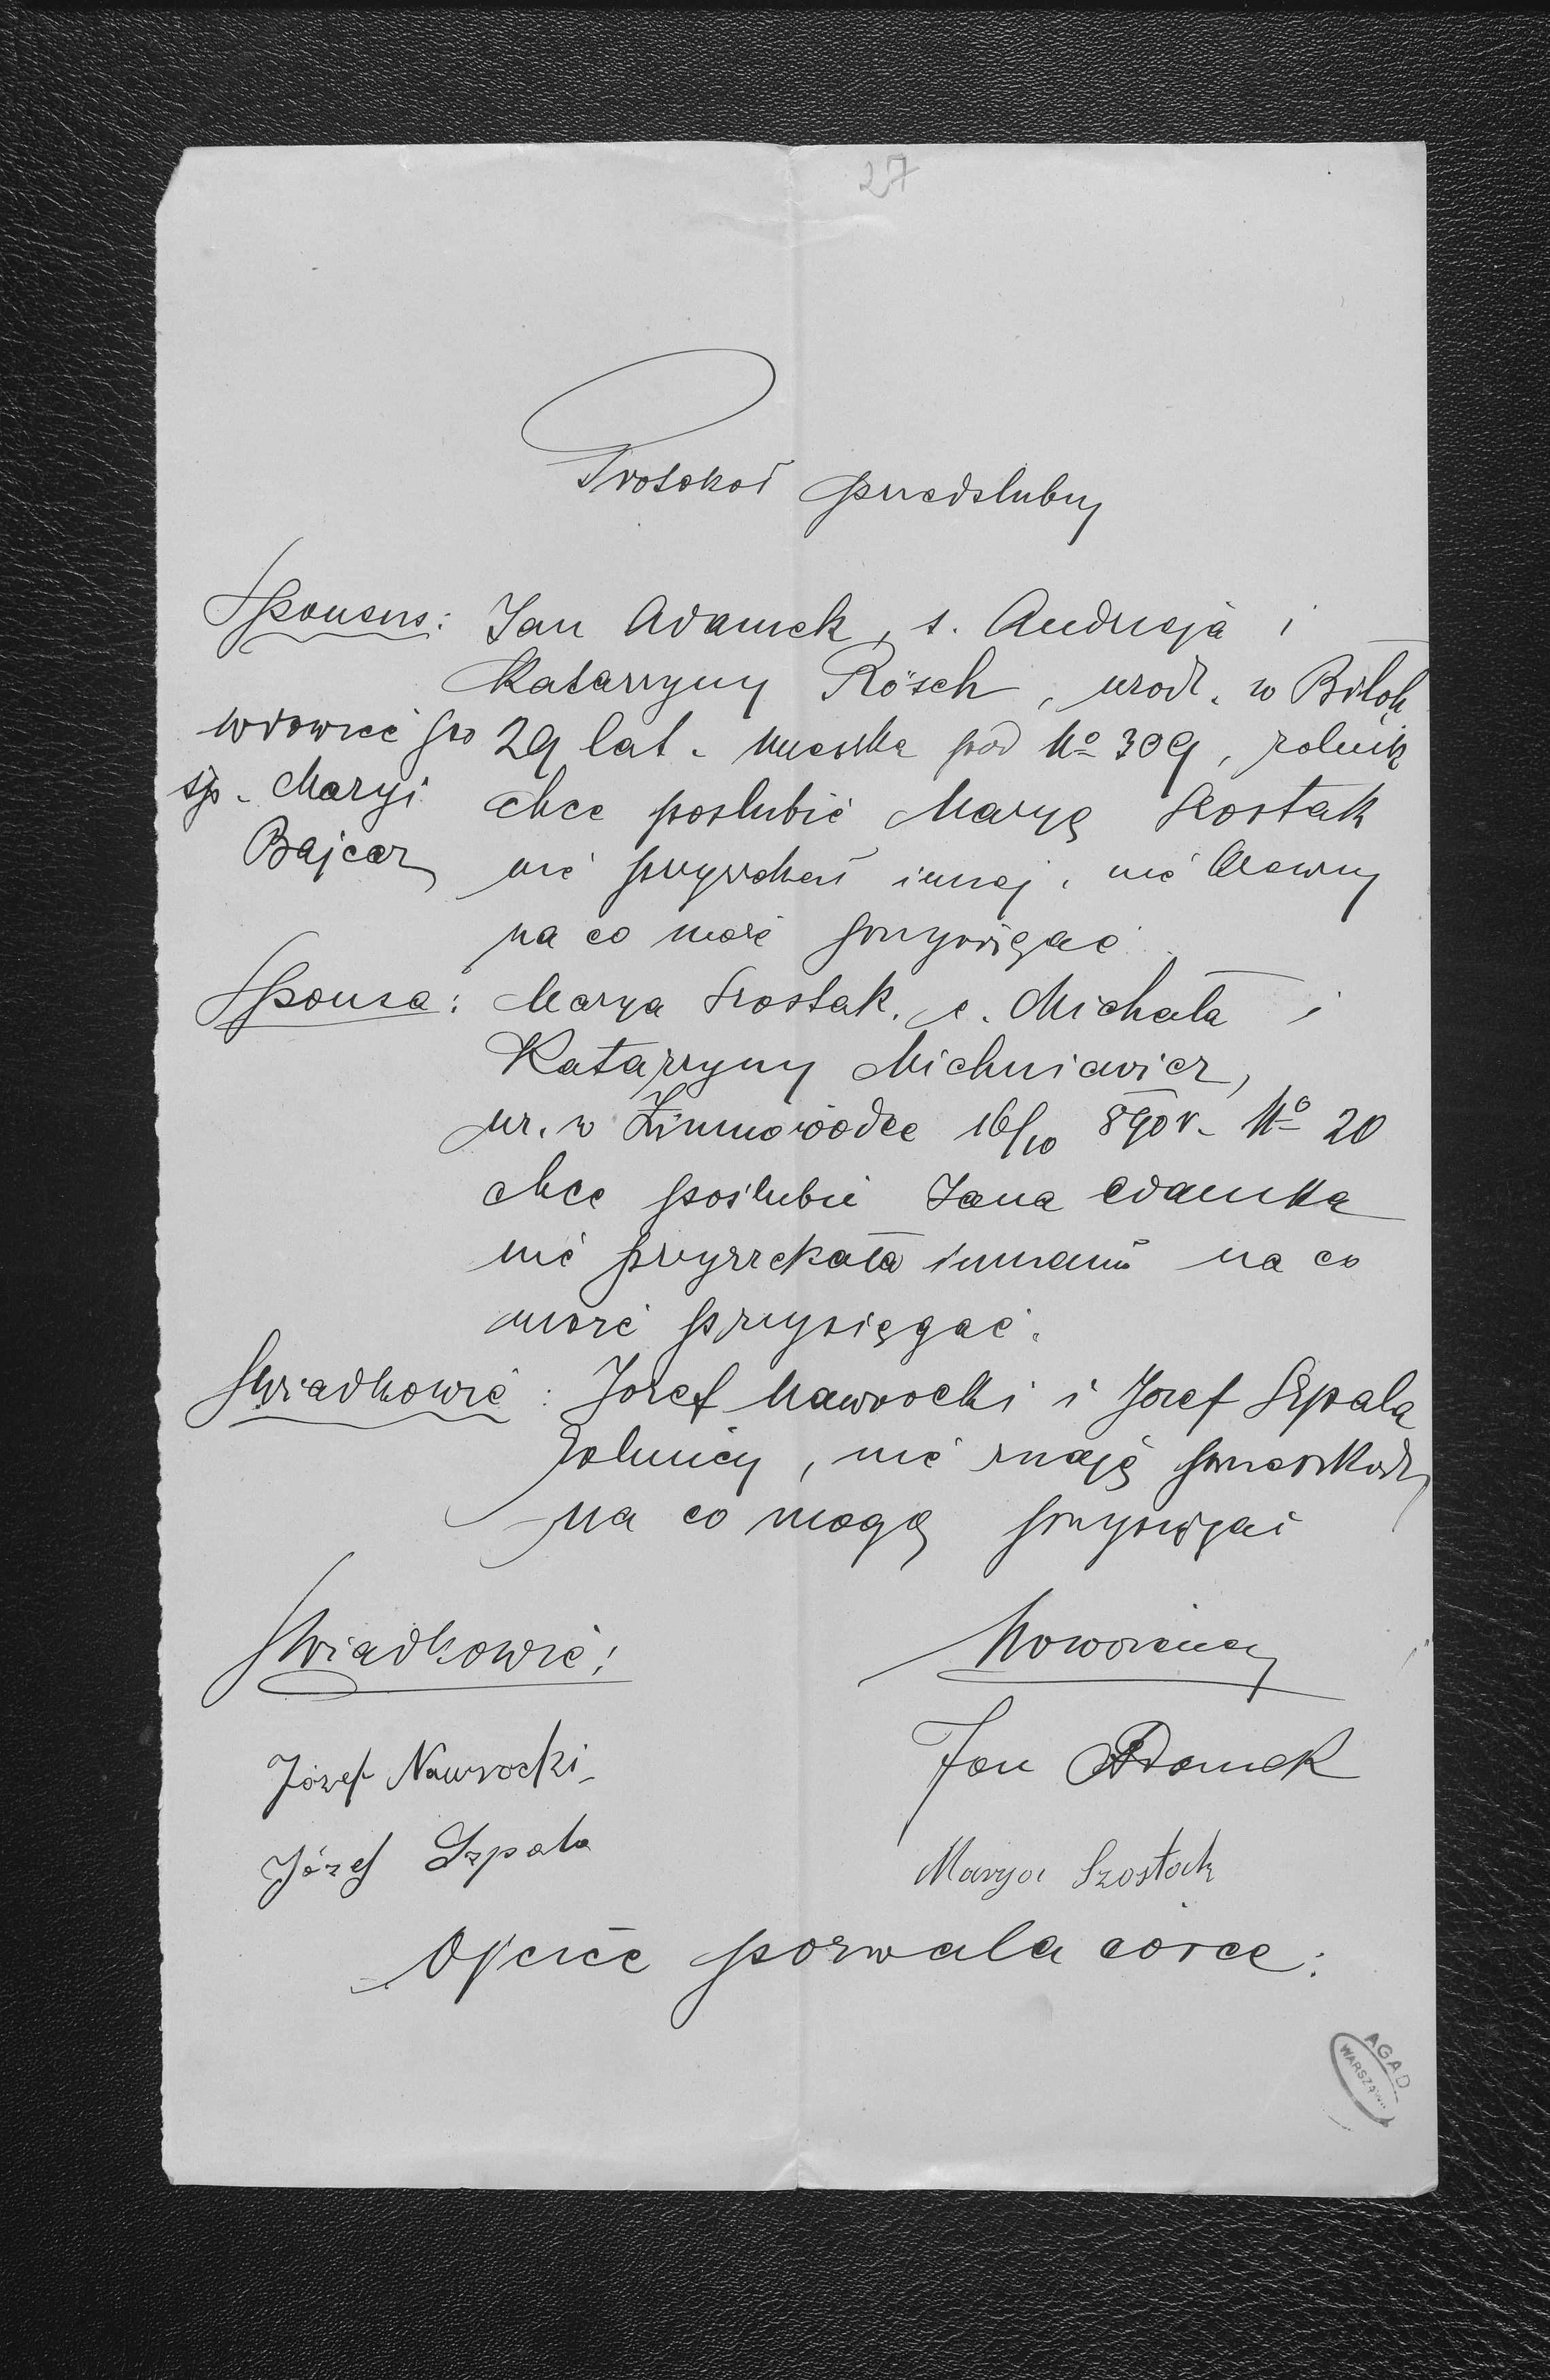 27
Protokoł przedslubny
Sponsus: Jan Adamek, s. Andrzeja i
Katarzyny Rösch, urodz. w Biłoh
wdowiec po 29 lat. mieszka pod No 309, rolnik
śp. Maryi chce poslubić Maryę Szostak
Bajcar nie przyrzekał innej, nie
na co może przysięgać
Sponsa: Marya Szostak, c. Michała i
Katarzyny Michniewicz,
ur. w Zimnowódce 16/10 890 r. No 20
chce poślubić Jana Adamka
nie przyrzekała innemu na co
może przysięgać.
Swiadkowie: Jozef Nawrocki i Jozef Szpala
rolnicy, nie znają przeszkody
na co mogą przysięgać
Swiadkowie: Nowożeńcy
Józef Nawrocki Jan Adamek
Józef Szpala
Marya Szostack
Ojciec pozwala córce:
AGAD
WARSZAWA